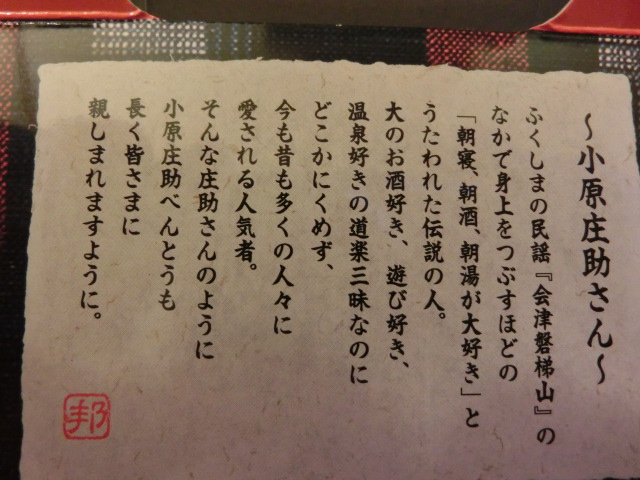 ～小原庄助さん～
ふくしまの民謡『会津磐梯山』の
なかで身上をつぶすほどの
「朝寝、朝酒、朝湯が大好き」と
うたわれた伝説の人。
大のお酒好き、遊び好き、
温泉好きの道楽三昧なのに
どこかにくめず、
今も昔も多くの人々に
愛される人気者。
そんな庄助さんのように
小原庄助べんとうも
長く皆さまに
親しまれますように。
邦